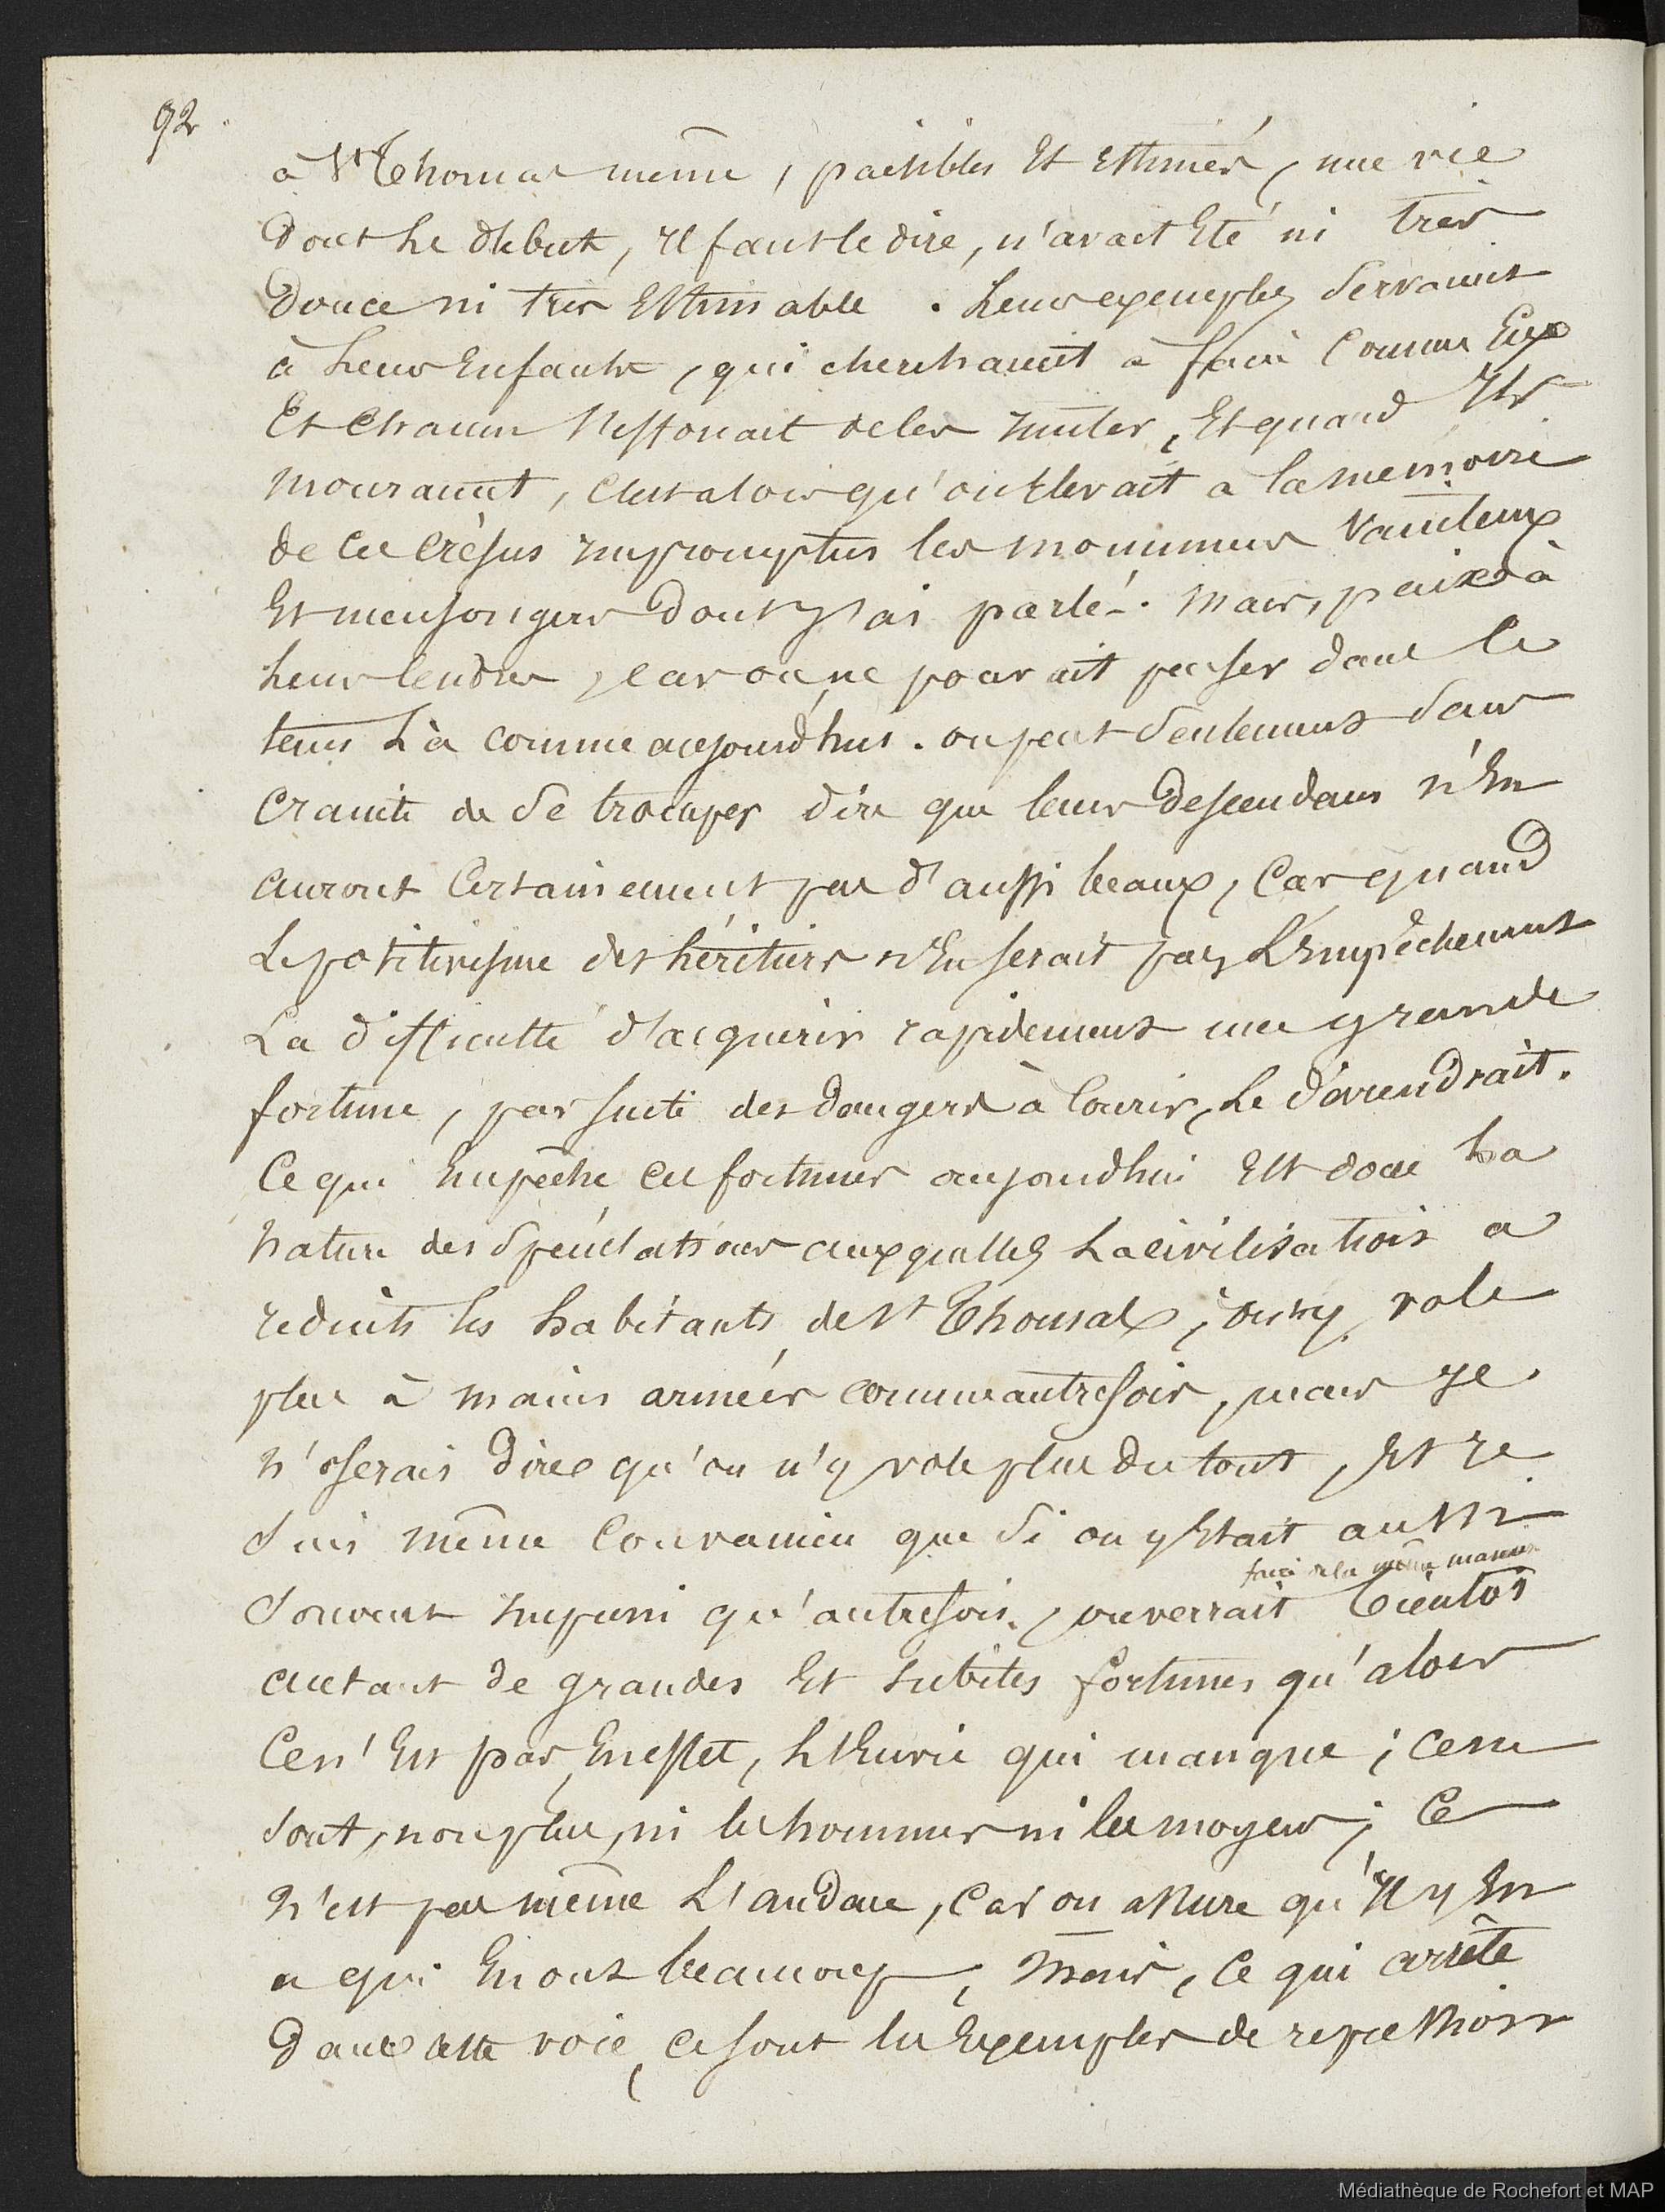 92.
à St Thomas même, paisibles Et Estimés, une vie
dont Le début, Il faut le dire, n'avait Eté ni très
douce ni très Estimable. Leurs exemples Servaient
à Leurs Enfants, qui cherchaient à faire Comme Eux
Et Chacun s'efforcait de les imiter, Et quand Ils
mouraient, C'est alors qu'on Elevait à la memoire
de ces Crésus impromptus les monumens Vaniteux
Et mensongers dont J'ai parlé. Mais, paix à
Leurs cendres, car on ne pouvait penser dans ce
tems Là comme aujourd'hui. on peut Seulement Sans
crainte de Se tromper dire que leurs Descendans n'En
auront Certainement pas d'aussi beaux, Car quand
Le positivisme des héritiers n'En serait pas L'Empêchement
La difficulté d'acquérir rapidement une grande
fortune, par suite des dangers à Courir, Le deviendrait.
Ce qui Empêche ces fortunes aujourdhui Est donc La
Nature des Spéculations auxquelles La civilisation a
reduits les habitants de St Thomas; on n'y vole
plus à mains armées comme autrefois, mais Je
N'oserais dire qu'on n'y vole plus du tout, Et Je
Suis même Convaincu que Si on y Etait aussi
faire de la même manière
Souvent Impuni qu'autrefois, on verrait bientôt
autant de grandes Et subites fortunes qu'alors
Ce n'Est pas, En effet, L'Envie qui manque; ce ne
Sont, non plus, ni les hommes ni les moyens; Ce
N'est pas même L'audace, Car on assure qu'Il y En
a qui En ont beaucoup; Mais, Ce qui arrête
Dans cette voie, ce sont les Exemples de repression